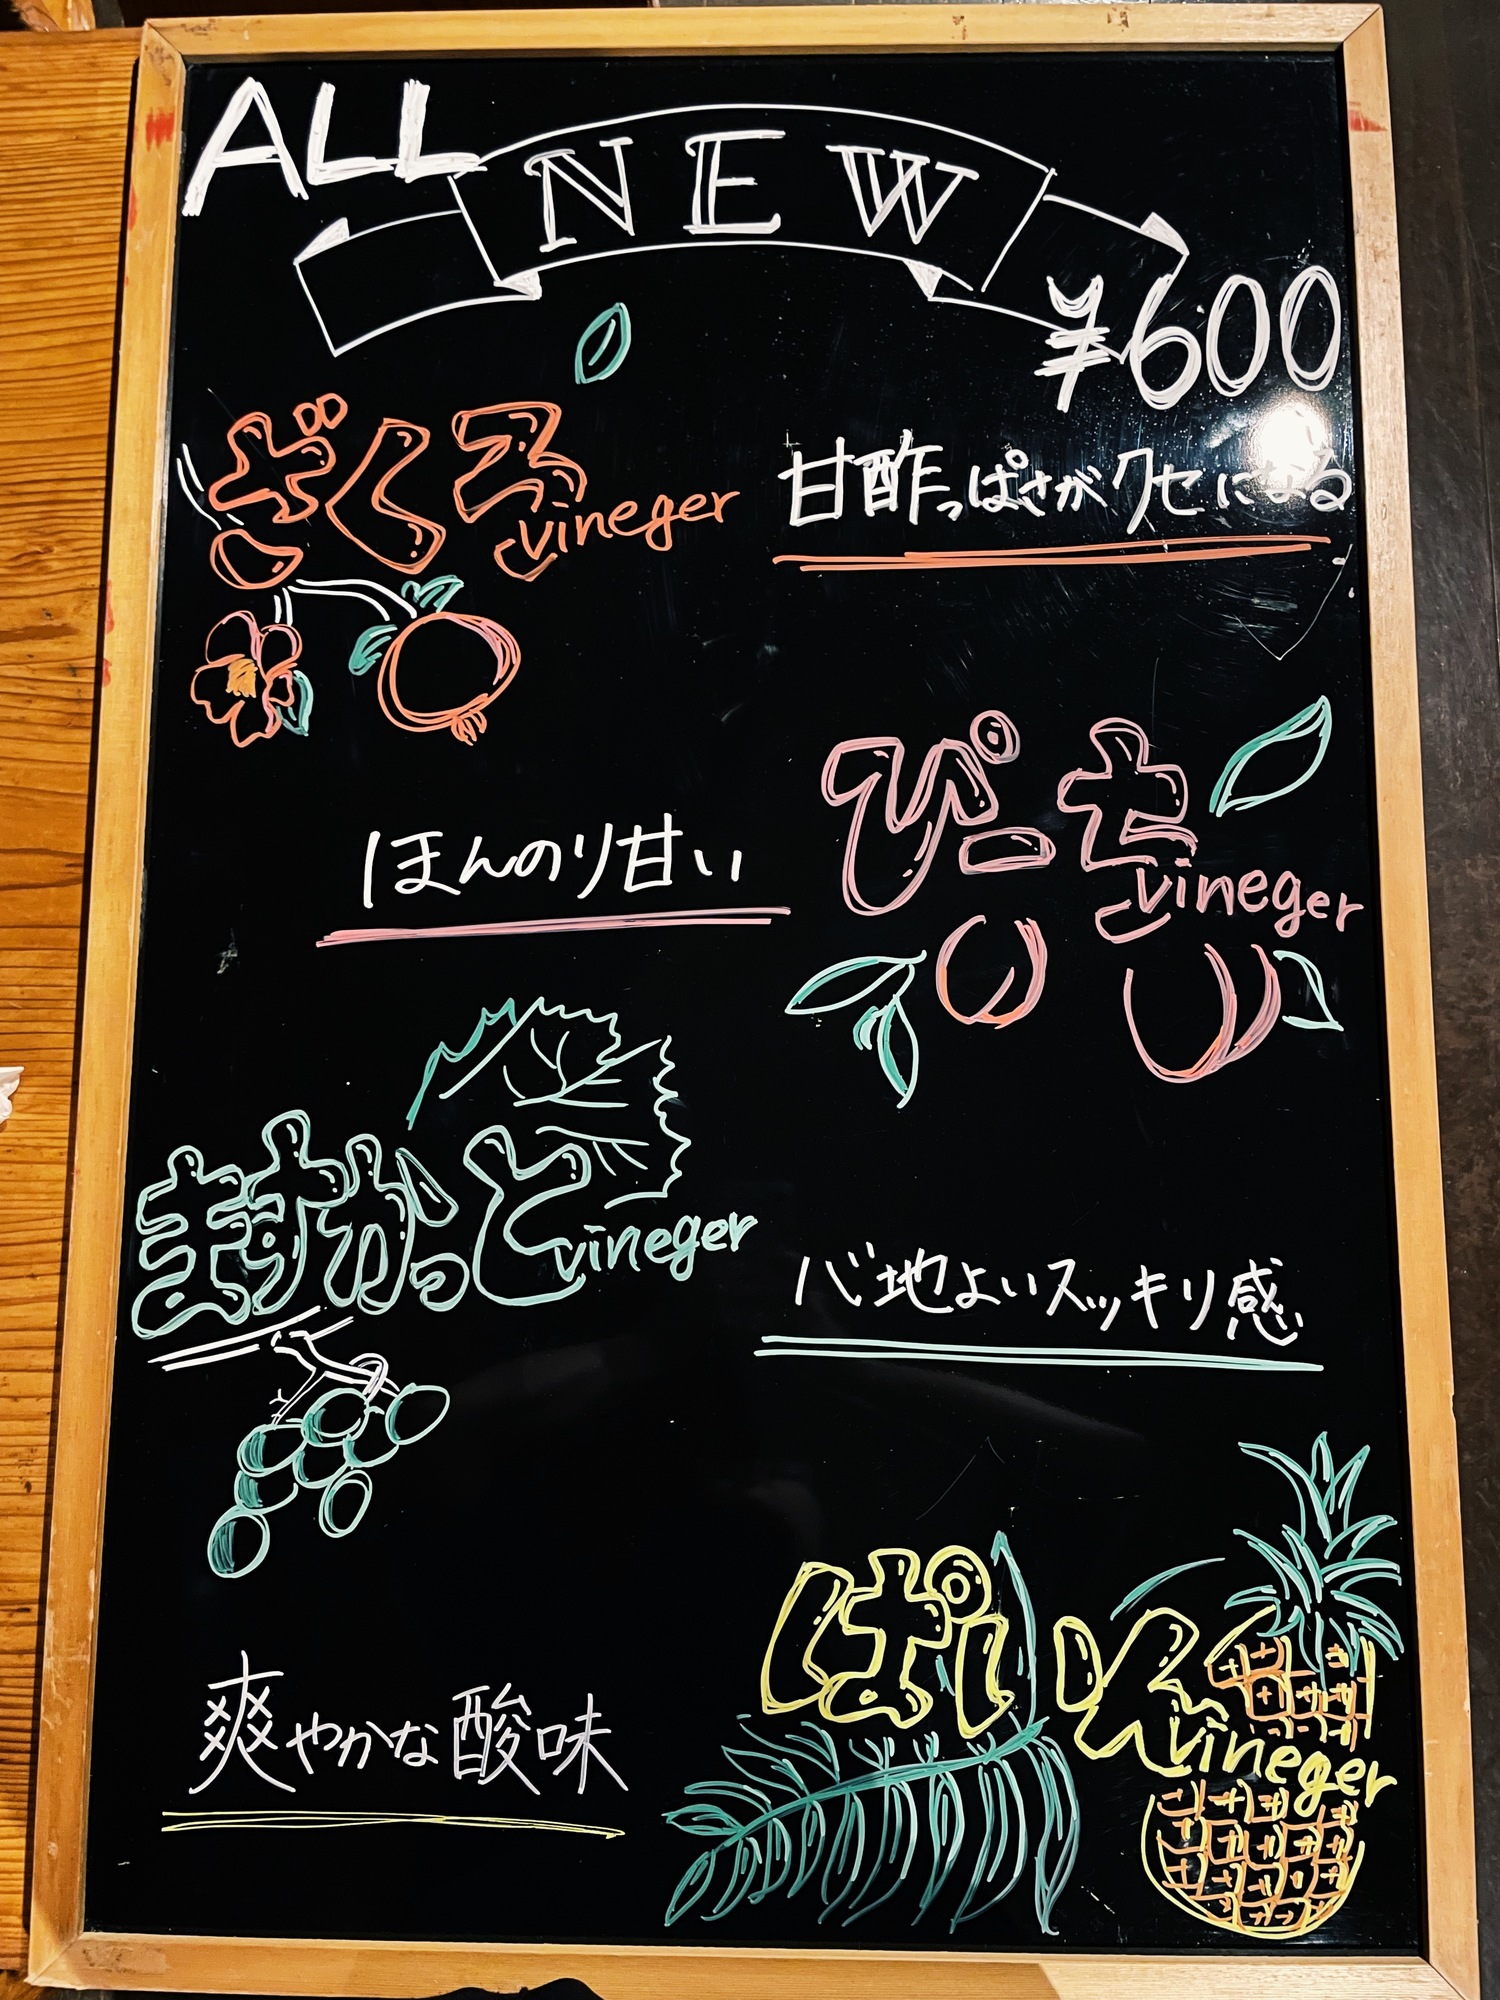 ALL
NEW
¥600
ざくろ
vineger
甘酢っぱさがクセになる
ぴーち
vineger
ほんのり甘い
ますかっと
vineger
心地よいスッキリ感
ぱいん
vineger
爽やかな酸味